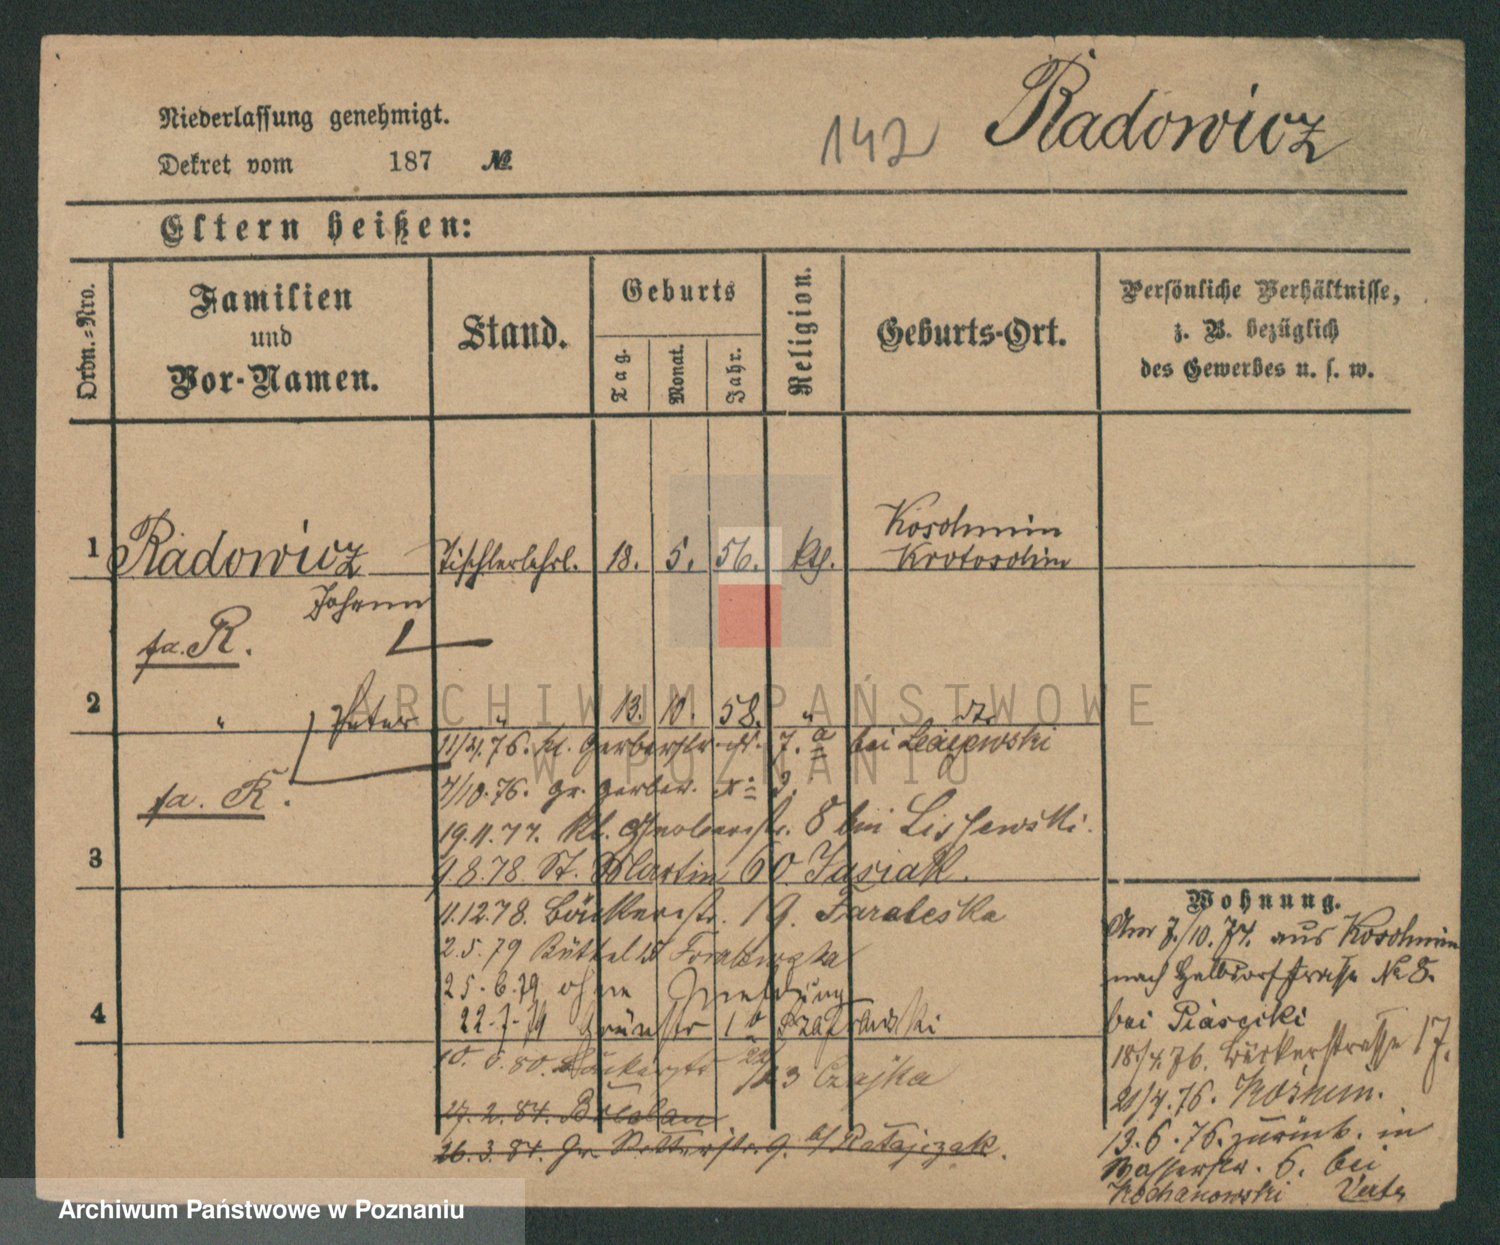 Niederlassung genehmigt.
Dekret vom 187 №
142
Radowicz
Eltern heißen:
Ordn.-Nro.
Familien
und
Vor-Namen.
Stand.
Geburts
Tag.
Monat.
Jahr.
Religion.
Geburts-Ort.
Persönliche Verhältnisse,
z. B. bezüglich
des Gewerbes u. s. w.
Koschmin
1 Radowicz Tischlerlehrl. 18. 5. 56. kth. Krotoschin
Johann
fa. R.
2 " Peter " 13. 10. 58. " do
11/4.76. kl. Gerberstr. 7. a bei
fa. R.
7/10.76. gr. Gerber. 9.
19.11.77. kl. 8 bei Lissewski.
3
4.8.78. St. Martin 60 Jasiak.
11.12.78. Bäckerstr. 19. Taraleska
2.5.79 Büttel 15
25.6.79 ohne Meldung
4
22.7.79 Grünstr 1 Szafranski
80. Bäckerstr 23 Czajka
27.2.84. Breslau
26.3.84. Gr. Ritterstr. 9. b/ Ratajczak.
Wohnung.
Am 7./10.74. aus Koschmin
nach Halbdorfstrasse No 8.
bei Piasecki
18/4.76. Bäckerstrasse 17.
21/4.76. Koschm.
13.6.76. zurück. in
Wasserstr. 6. bei
Kochanowski Verte
Archiwum Państwowe w Poznaniu
ARCHIWUM PAŃSTWOWE
W POZNANIU